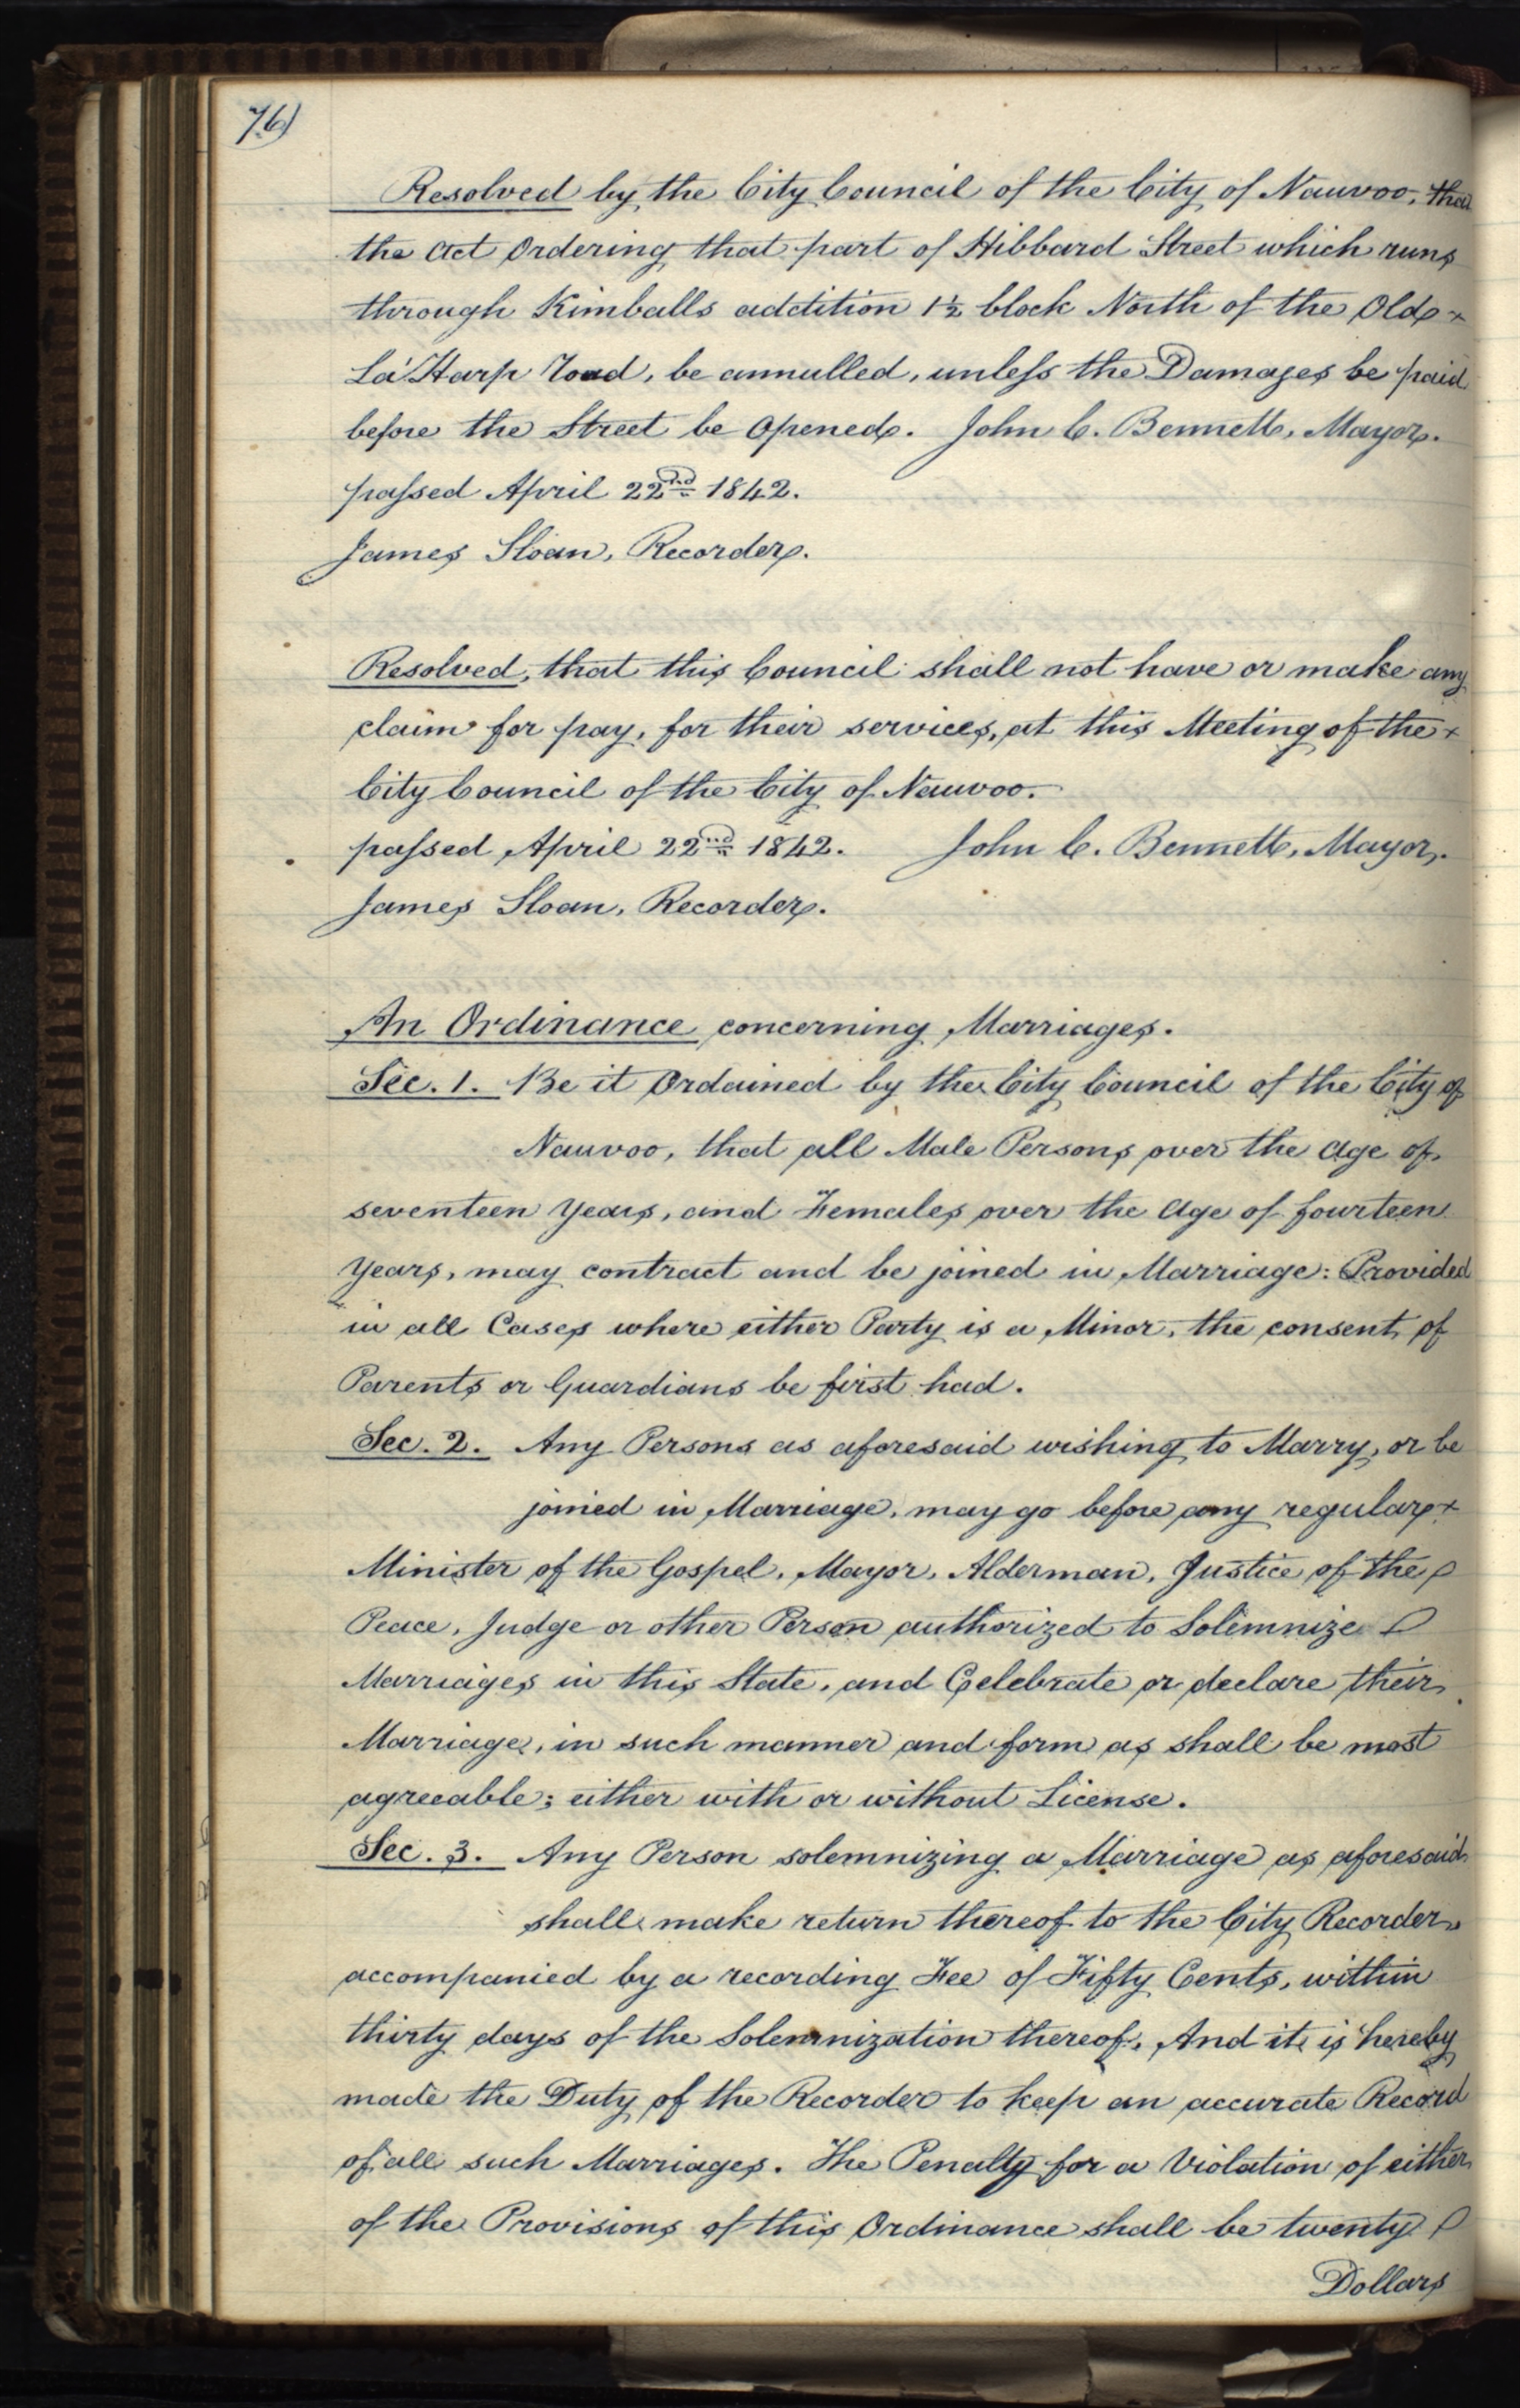 76)
Resolved by the City Council of the City of Nauvoo, that
the Act Ordering that part of Hibbard Street which runs
through Kimballs addition 1½ block North of the Old
La'Harp Road, be annulled, unless the Damages be paid
before the Street be Opened. John C. Bennett, Mayor.
passed April 22nd 1842.
James Sloan, Recorder.
Resolved, that this Council shall not have or make any
claim for pay, for their services, at this Meeting of the
City Council of the City of Nauvoo.
passed April 22nd 1842. John C. Bennett, Mayor.
James Sloan, Recorder.
An Ordinance concerning Marriages.
Sec. 1. Be it Ordained by the City Council of the City of
Nauvoo, that all Male Persons over the age of
seventeen years, and Females over the age of fourteen
years, may contract and be joined in Marriage: Provided
in all Cases where either Party is a Minor, the consent of
Parents or Guardians be first had.
Sec. 2. Any Persons as aforesaid wishing to Marry, or be
joined in Marriage, may go before any regular
Minister of the Gospel, Mayor, Alderman, Justice of the
Peace, Judge or other Person authorized to Solemnize
Marriages in this State, and Celebrate or declare their
Marriage, in such manner and form as shall be most
agreeable; either with or without License.
Sec. 3. Any Person solemnizing a Marriage as aforesaid
shall make return thereof to the City Recorder,
accompanied by a recording Fee of Fifty Cents, within
thirty days of the Solemnization thereof, And it is hereby
made the Duty of the Recorder to keep an accurate Record
of all such Marriages. The Penalty for a Violation of either
of the Provisions of this Ordinance shall be twenty
Dollars